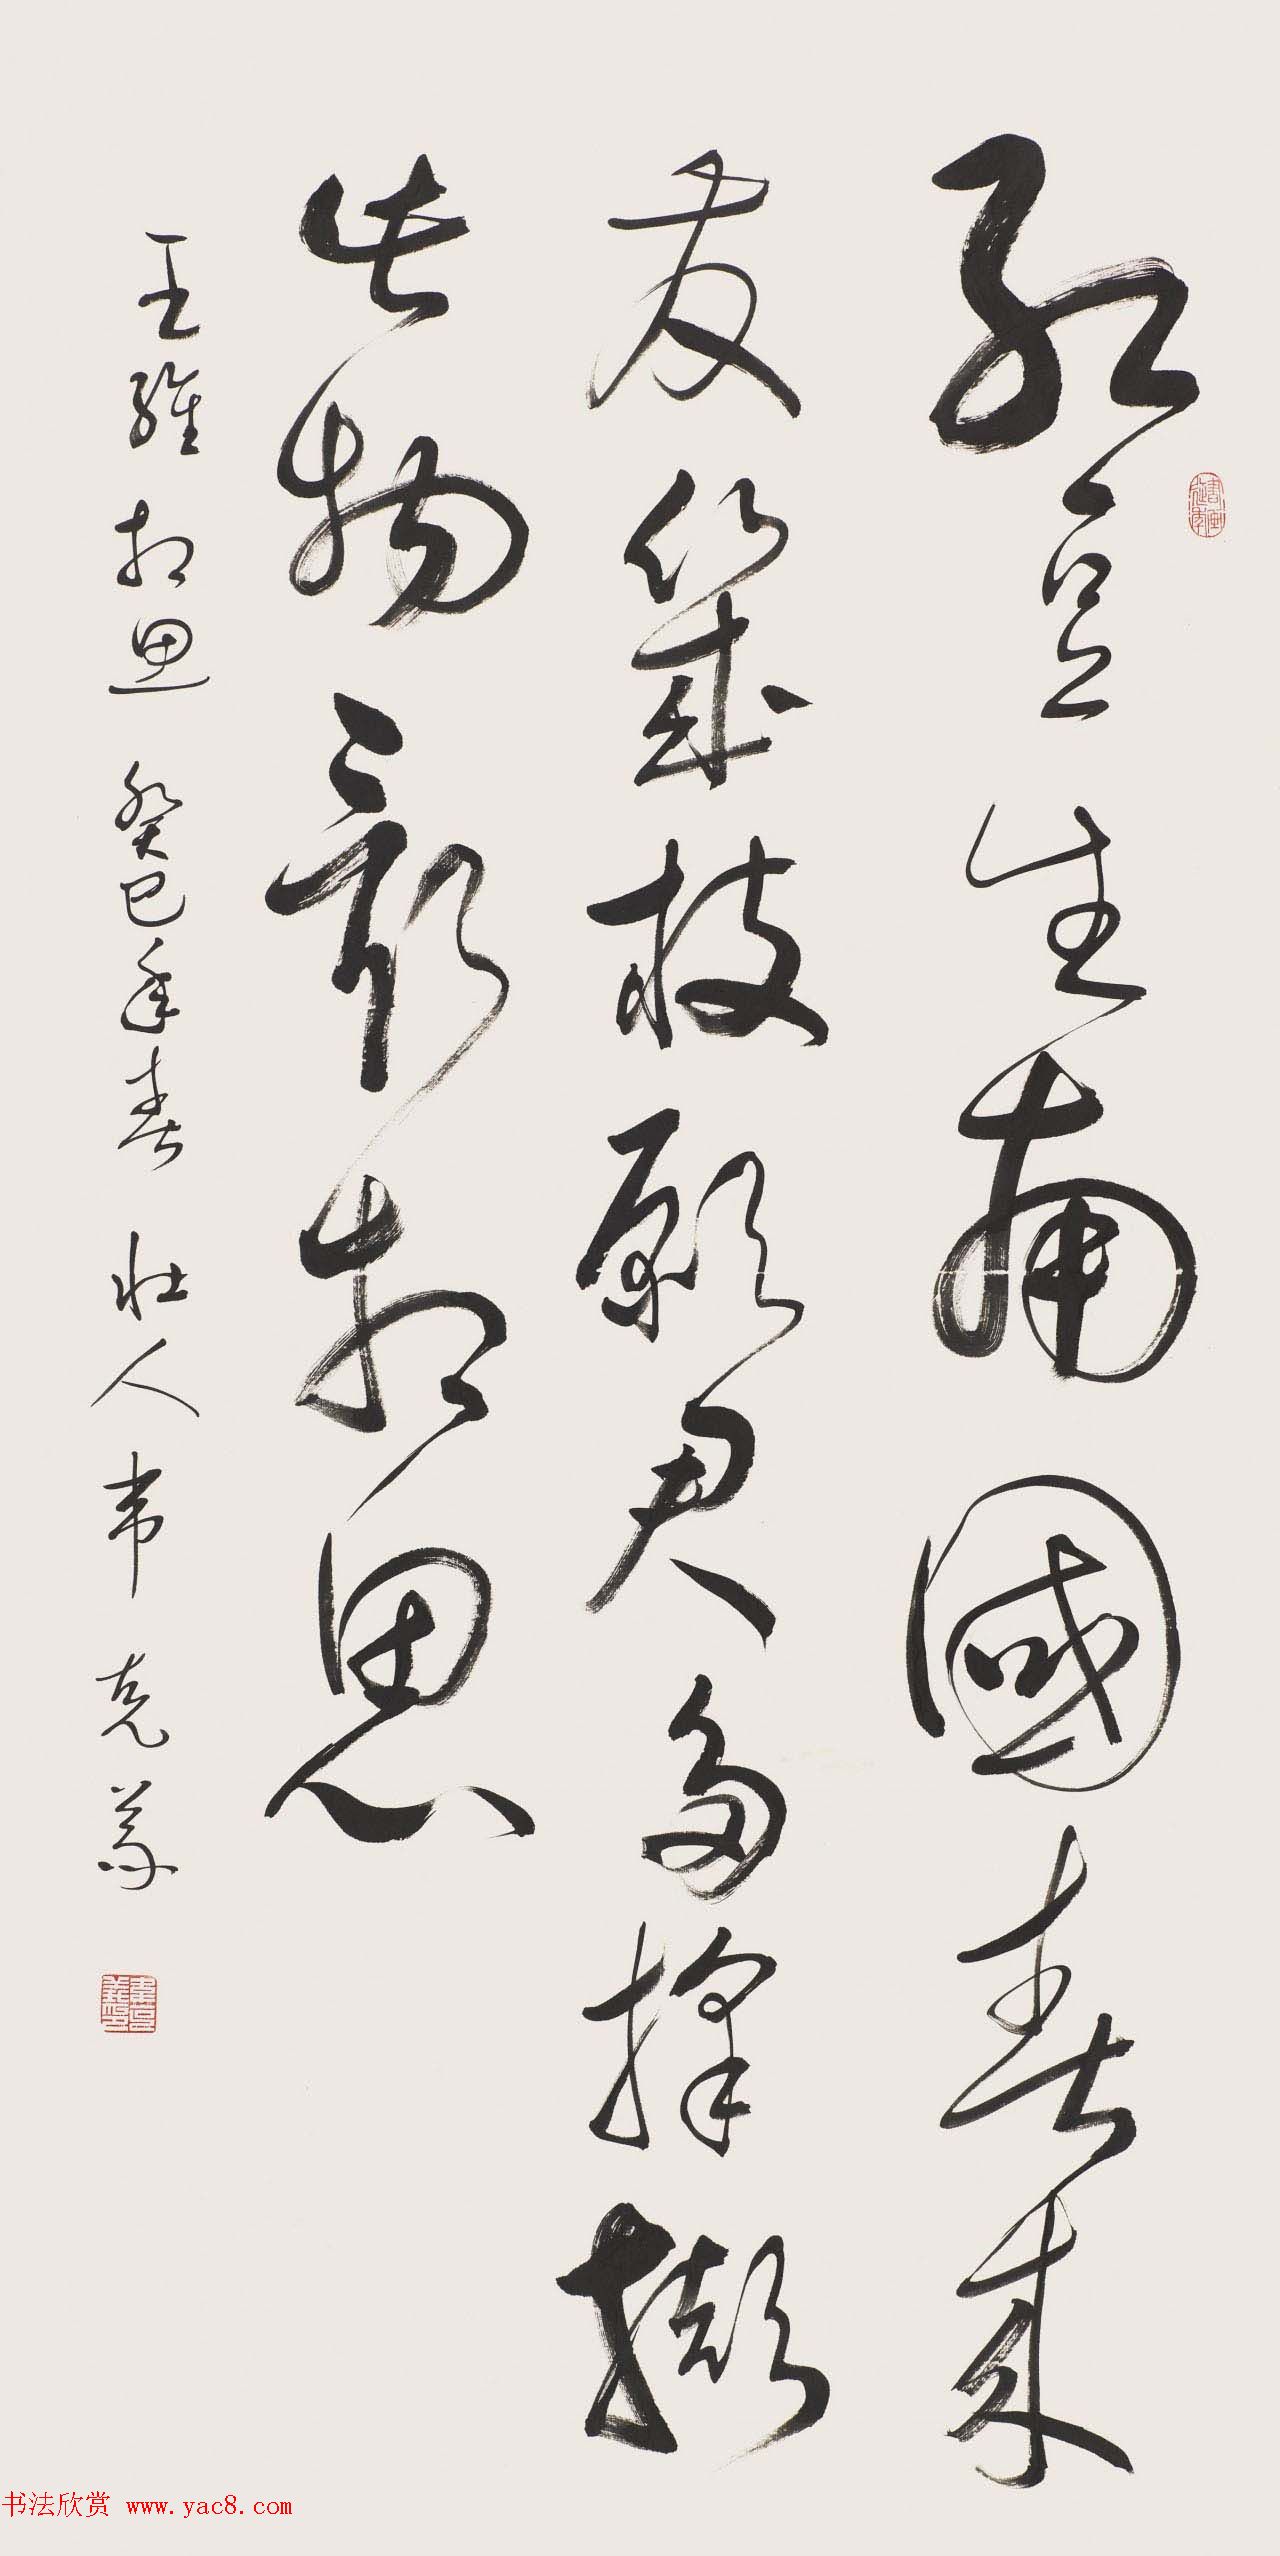 紅豆生南國春來
發幾枝願君多採擷
此物最相思
王維相思 癸巳年春 壮人韦克义
书法欣赏 www.yac8.com